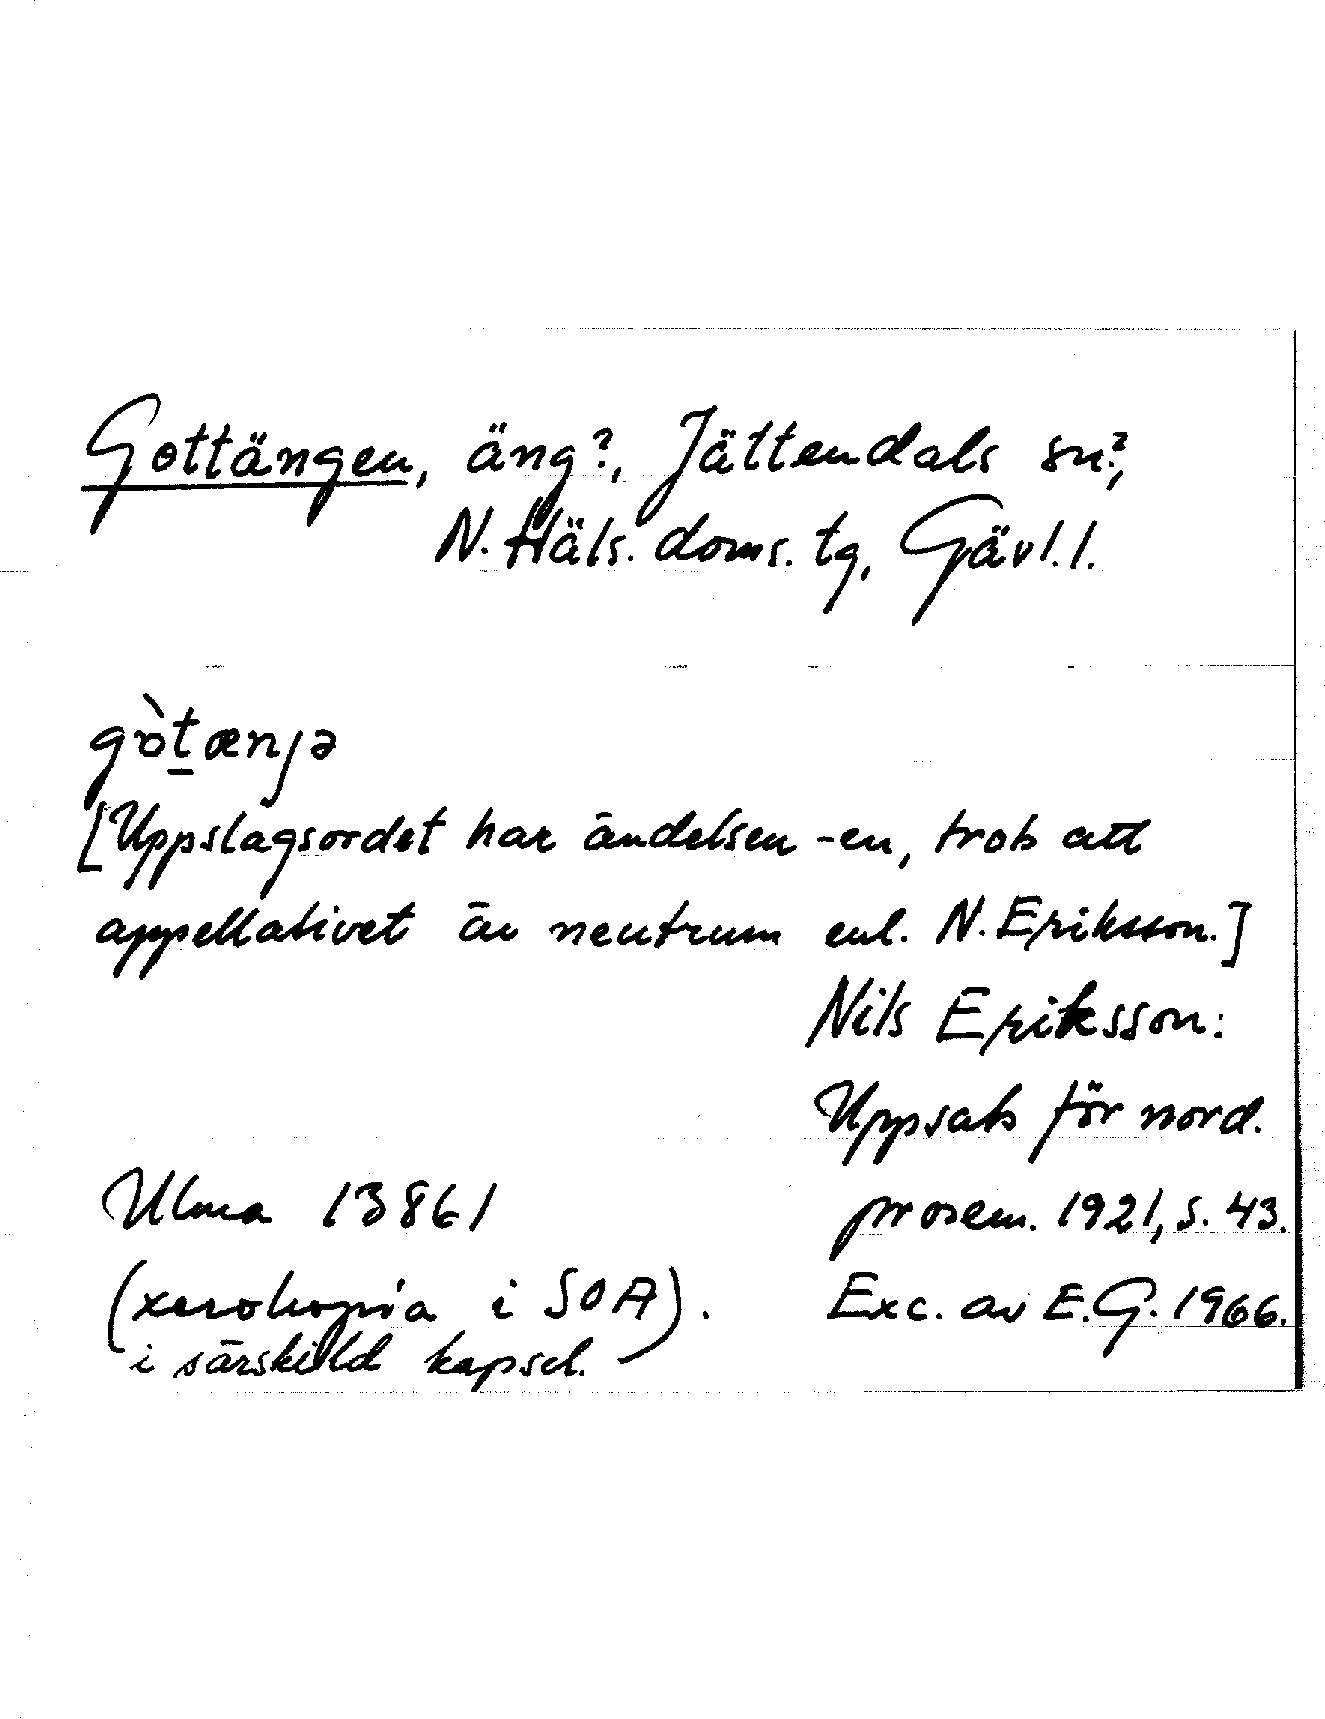 Gottängen, äng?, Jättendals sn?,
N. Häls. doms. tg, Gävl. l.
gò̱tænjə
[Uppslagsordet har ändelsen -en, trots att
appellativet är neutrum enl. N. Eriksson.]
Nils Eriksson:
Uppsats för nord.
prosem. 1921, s. 43.
Exc. av E. G. 1966.
Ulma 13861
(xerokopia i SOA).
i särskild kapsel.